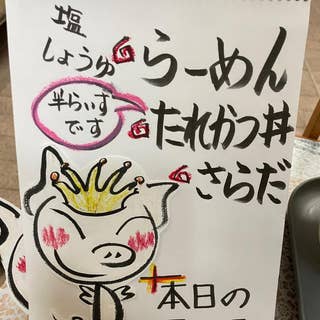 塩
しょうゆ
らーめん
半らいす
です
たれかつ丼
さらだ
本日の